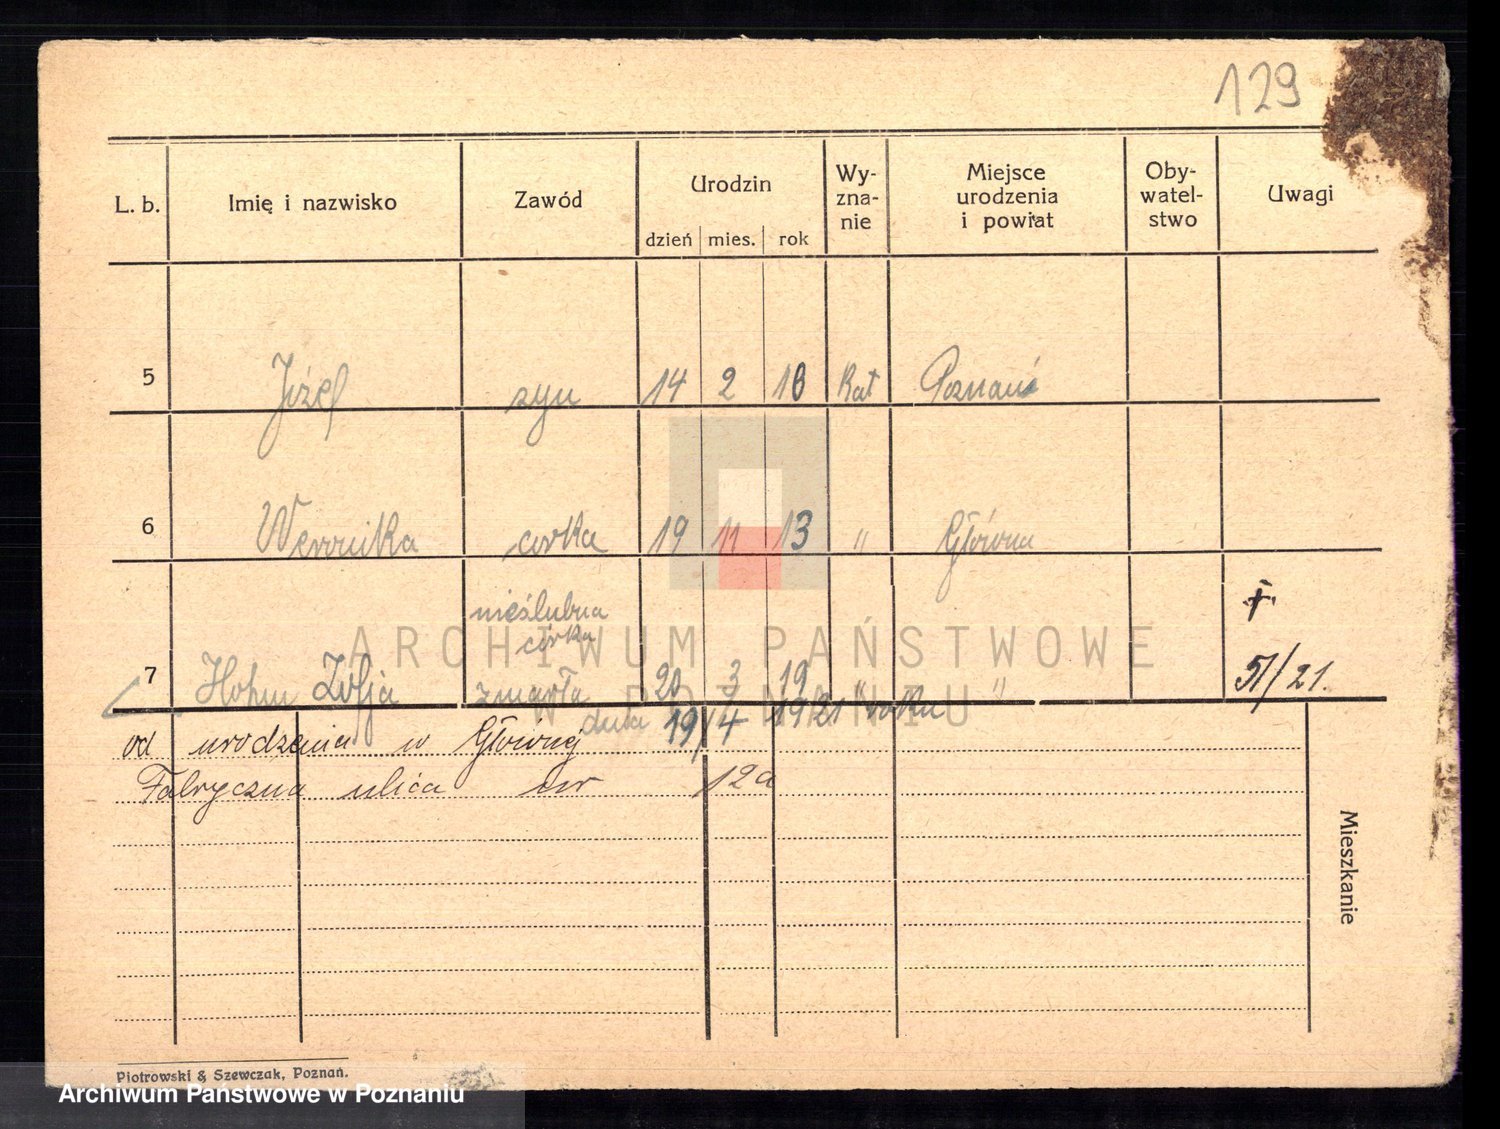 129
L. b. Imię i nazwisko Zawód Urodzin Wy-zna-nie Miejsce urodzenia i powiat Oby-watel-stwo Uwagi
dzień mies. rok
5 Józef syn 14 2 18 Kat Poznań
6 Weronika corka 19 11 13 " Główna
nieślubna
córka
†
7 Hohm Zofja zmarła 20 3 19 " " 51/21.
dnia 19/4 1921 roku
od urodzenia w Głównej
Fabryczna ulica nr 12a
Mieszkanie
Piotrowski & Szewczak, Poznań.
ARCHIWUM PAŃSTWOWE
W POZNANIU
Archiwum Państwowe w Poznaniu